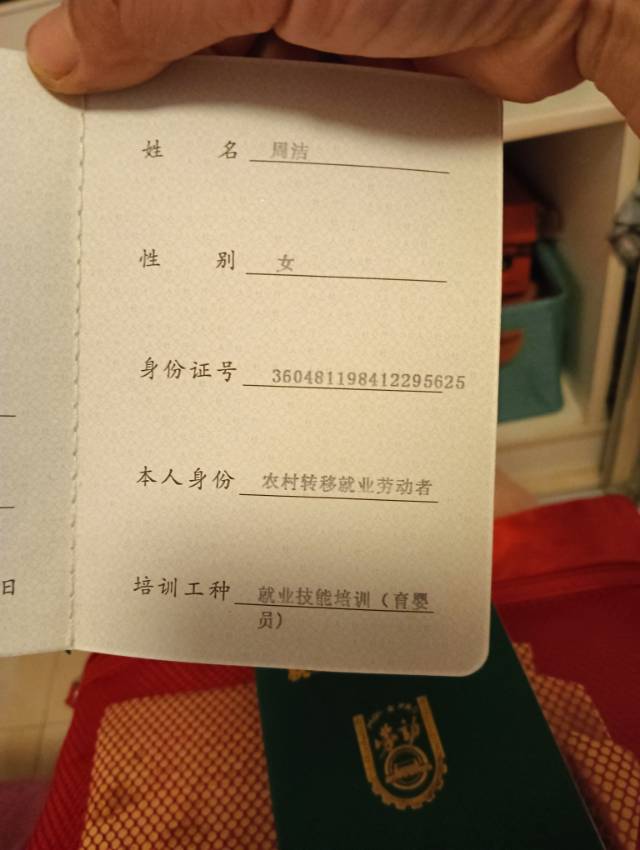 姓 名 周洁
性 别 女
身份证号 360481198412295625
本人身份 农村转移就业劳动者
培训工种 就业技能培训（育婴
员）
日